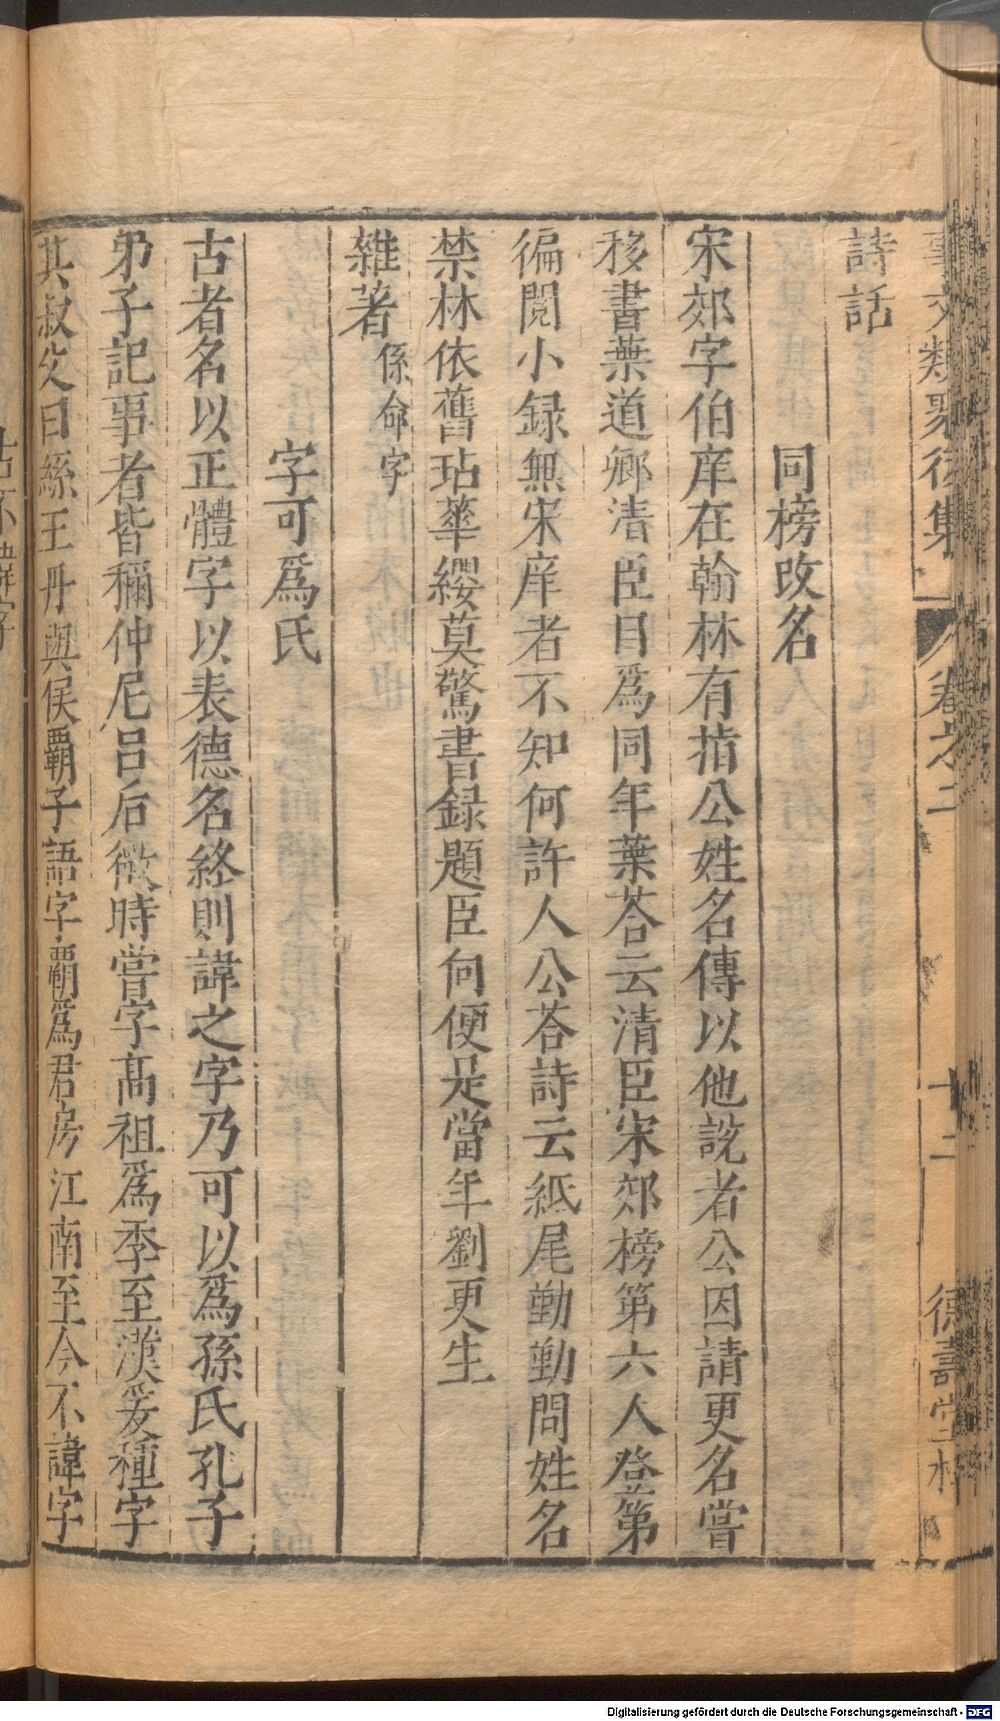 事文類聚後集 卷之二 十二 德壽堂梓
詩話
同榜改名
宋郊字伯庠在翰林有指公姓名傳以他說者公因請更名嘗
移書葉道卿清臣目爲同年葉荅云清臣宋郊榜第六人登第
徧閱小録無宋庠者不知何許人公荅詩云紙尾勤勤問姓名
禁林依舊玷華纓莫驚書録題臣向便是當年劉更生
雜著係命字
字可爲氏
古者名以正體字以表德名終則諱之字乃可以爲孫氏孔子
弟子記事者皆稱仲尼吕后微時嘗字髙祖爲季至漢爰種字
其叔父曰絲王丹與侯覇子語字覇爲君房江南至今不諱字
Digitalisierung gefördert durch die Deutsche Forschungsgemeinschaft - DFG